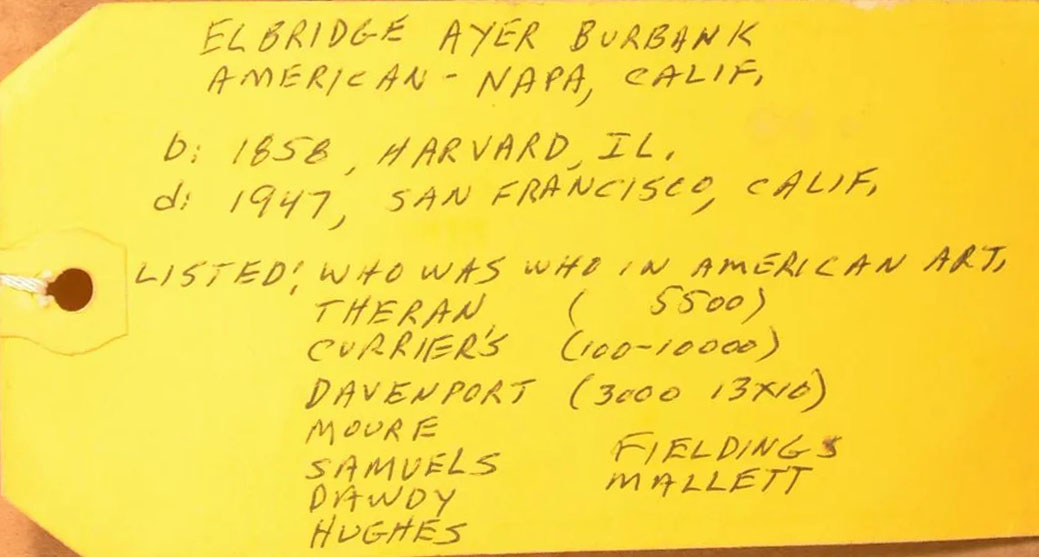 ELBRIDGE AYER BURBANK
AMERICAN - NAPA, CALIF.
b: 1858, HARVARD, IL.
d: 1947, SAN FRANCISCO, CALIF.
LISTED: WHO WAS WHO IN AMERICAN ART,
THERAN (5500)
CURRIER'S (100-10000)
DAVENPORT (3000 13X10)
MOURE
SAMUELS
DAWDY
HUGHES
FIELDINGS
MALLETT